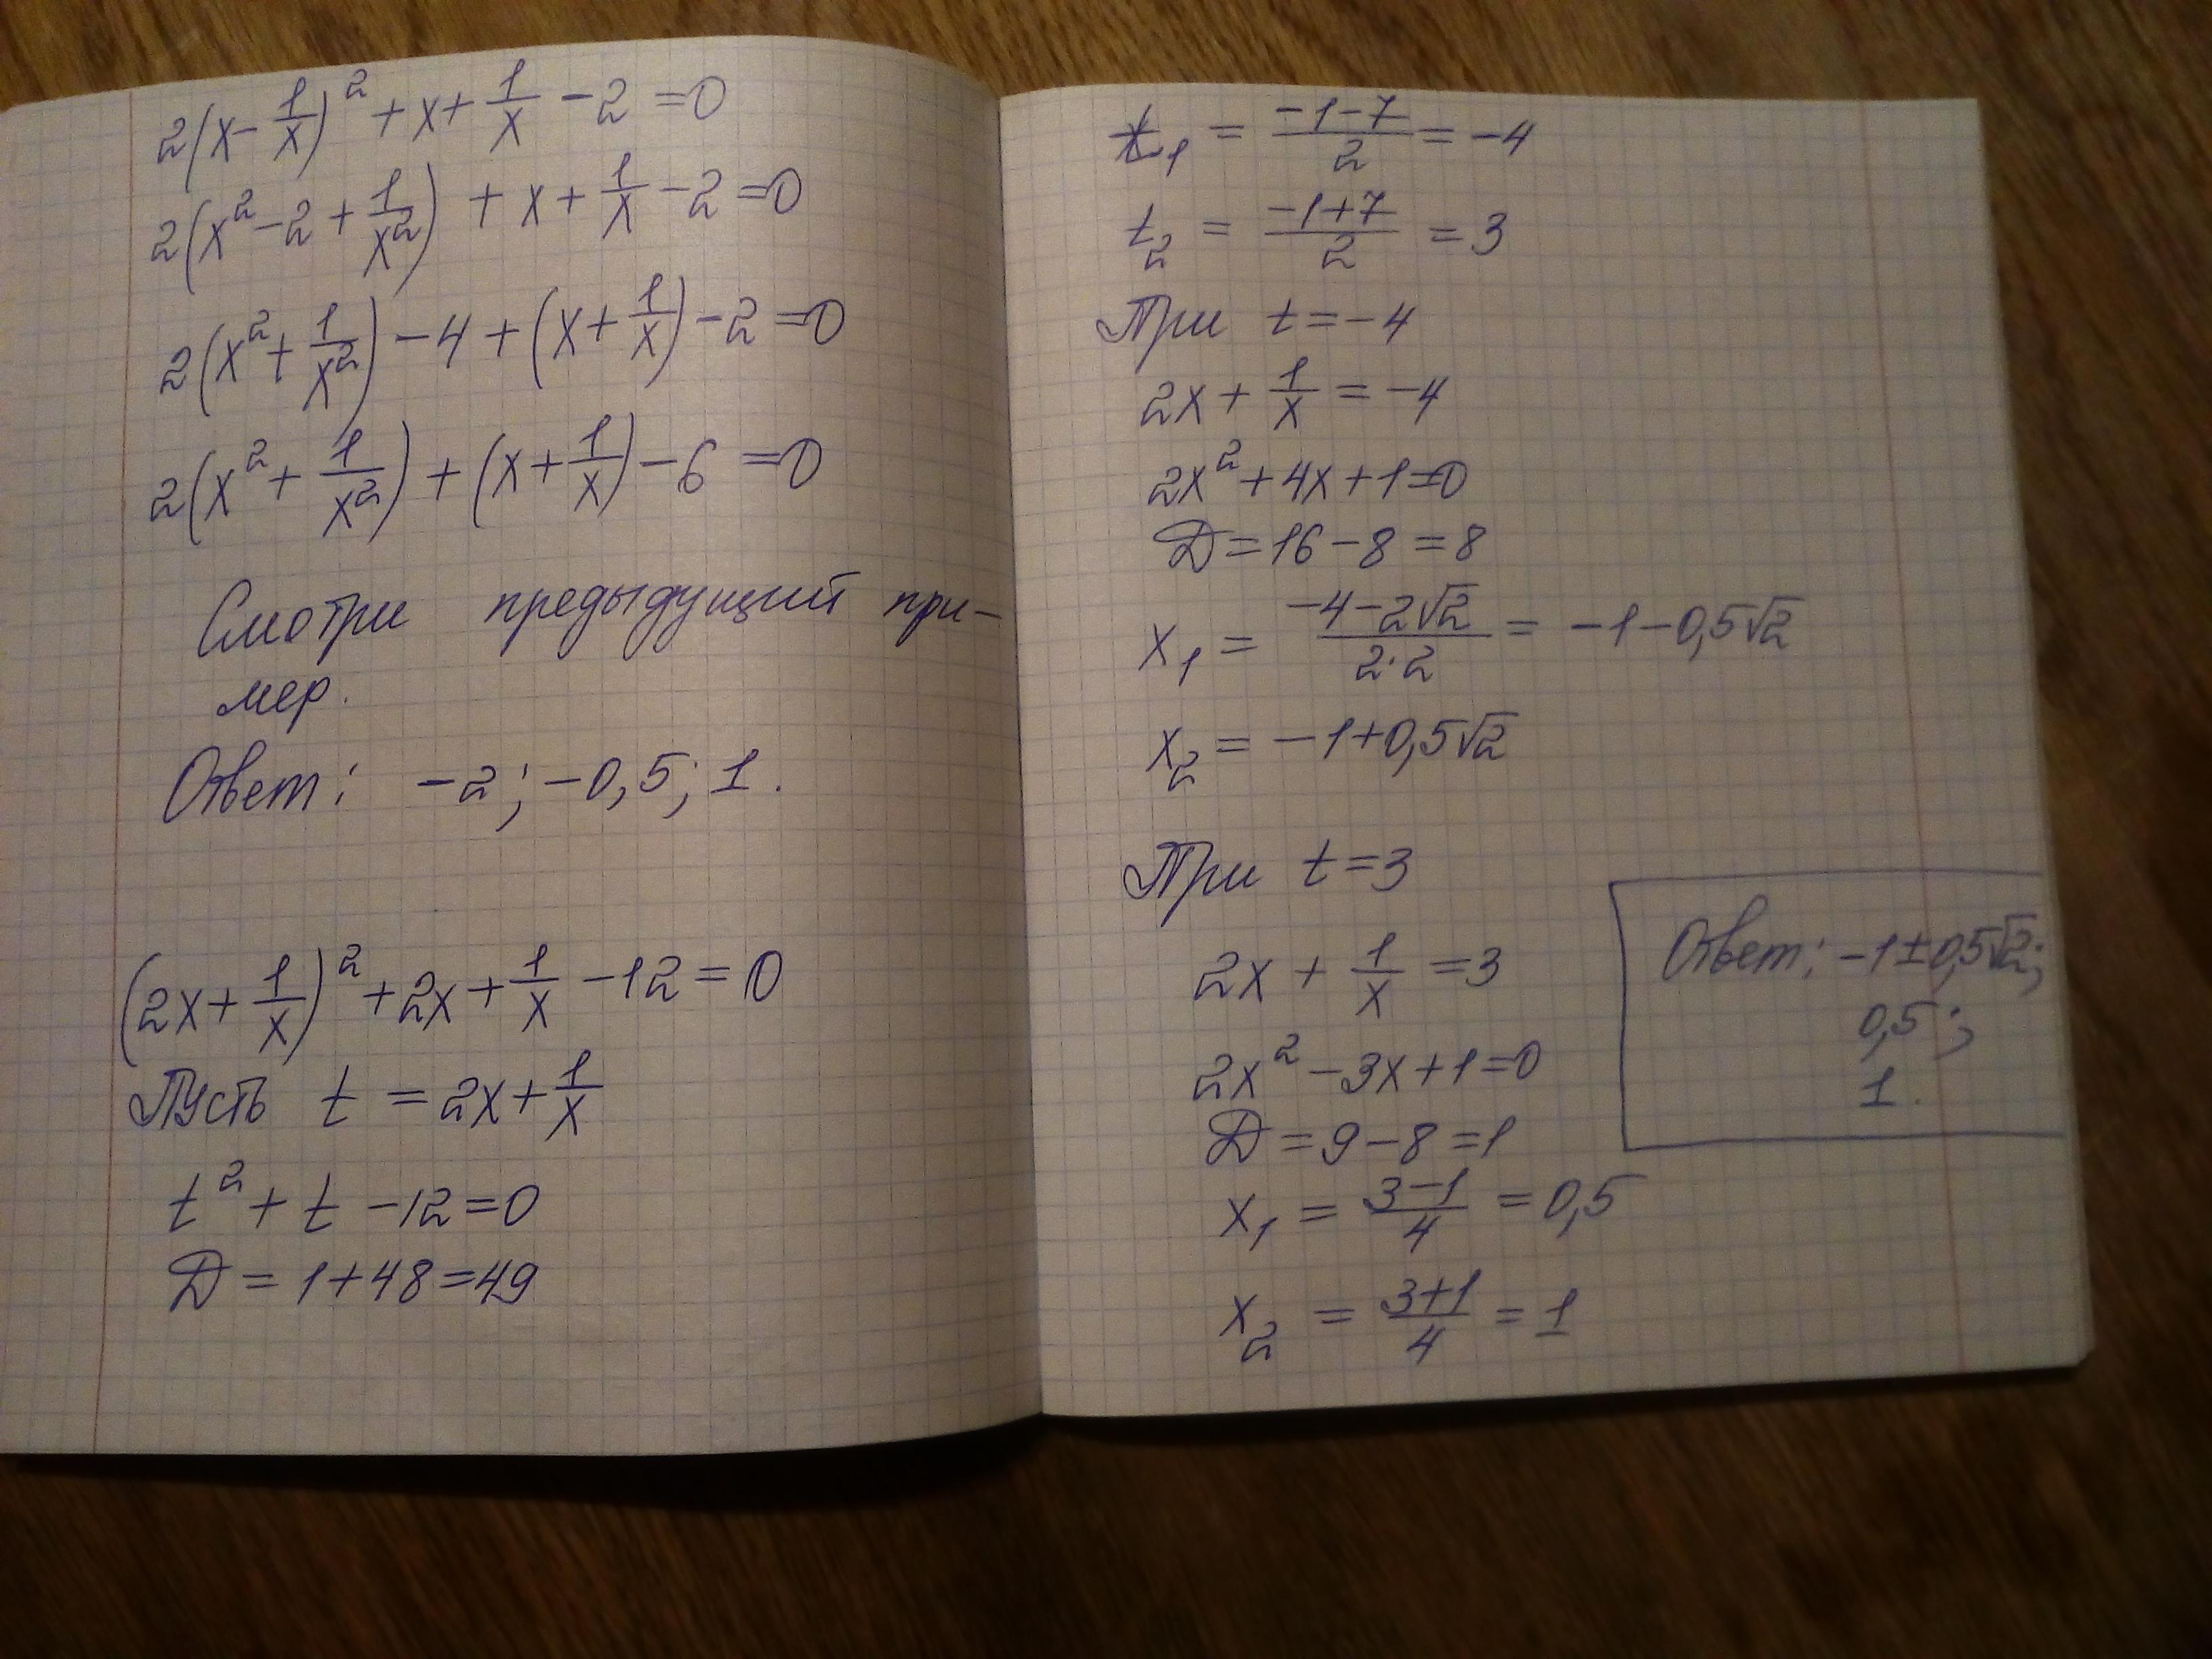 2(x - 1/x)² + x + 1/x - 2 = 0
2(x² - 2 + 1/x²) + x + 1/x - 2 = 0
2(x² + 1/x²) - 4 + (x + 1/x) - 2 = 0
2(x² + 1/x²) + (x + 1/x) - 6 = 0
Смотри предыдущий при-
мер.
Ответ: -2; -0,5; 1.
(2x + 1/x)² + 2x + 1/x - 12 = 0
Пусть t = 2x + 1/x
t² + t - 12 = 0
Д = 1 + 48 = 49
t₁ = (-1-7)/2 = -4
t₂ = (-1+7)/2 = 3
При t = -4
2x + 1/x = -4
2x² + 4x + 1 = 0
Д = 16 - 8 = 8
x₁ = (-4-2√2)/(2·2) = -1 - 0,5√2
x₂ = -1 + 0,5√2
При t = 3
2x + 1/x = 3
2x² - 3x + 1 = 0
Д = 9 - 8 = 1
x₁ = (3-1)/4 = 0,5
x₂ = (3+1)/4 = 1
Ответ: -1 ± 0,5√2;
0,5;
1.